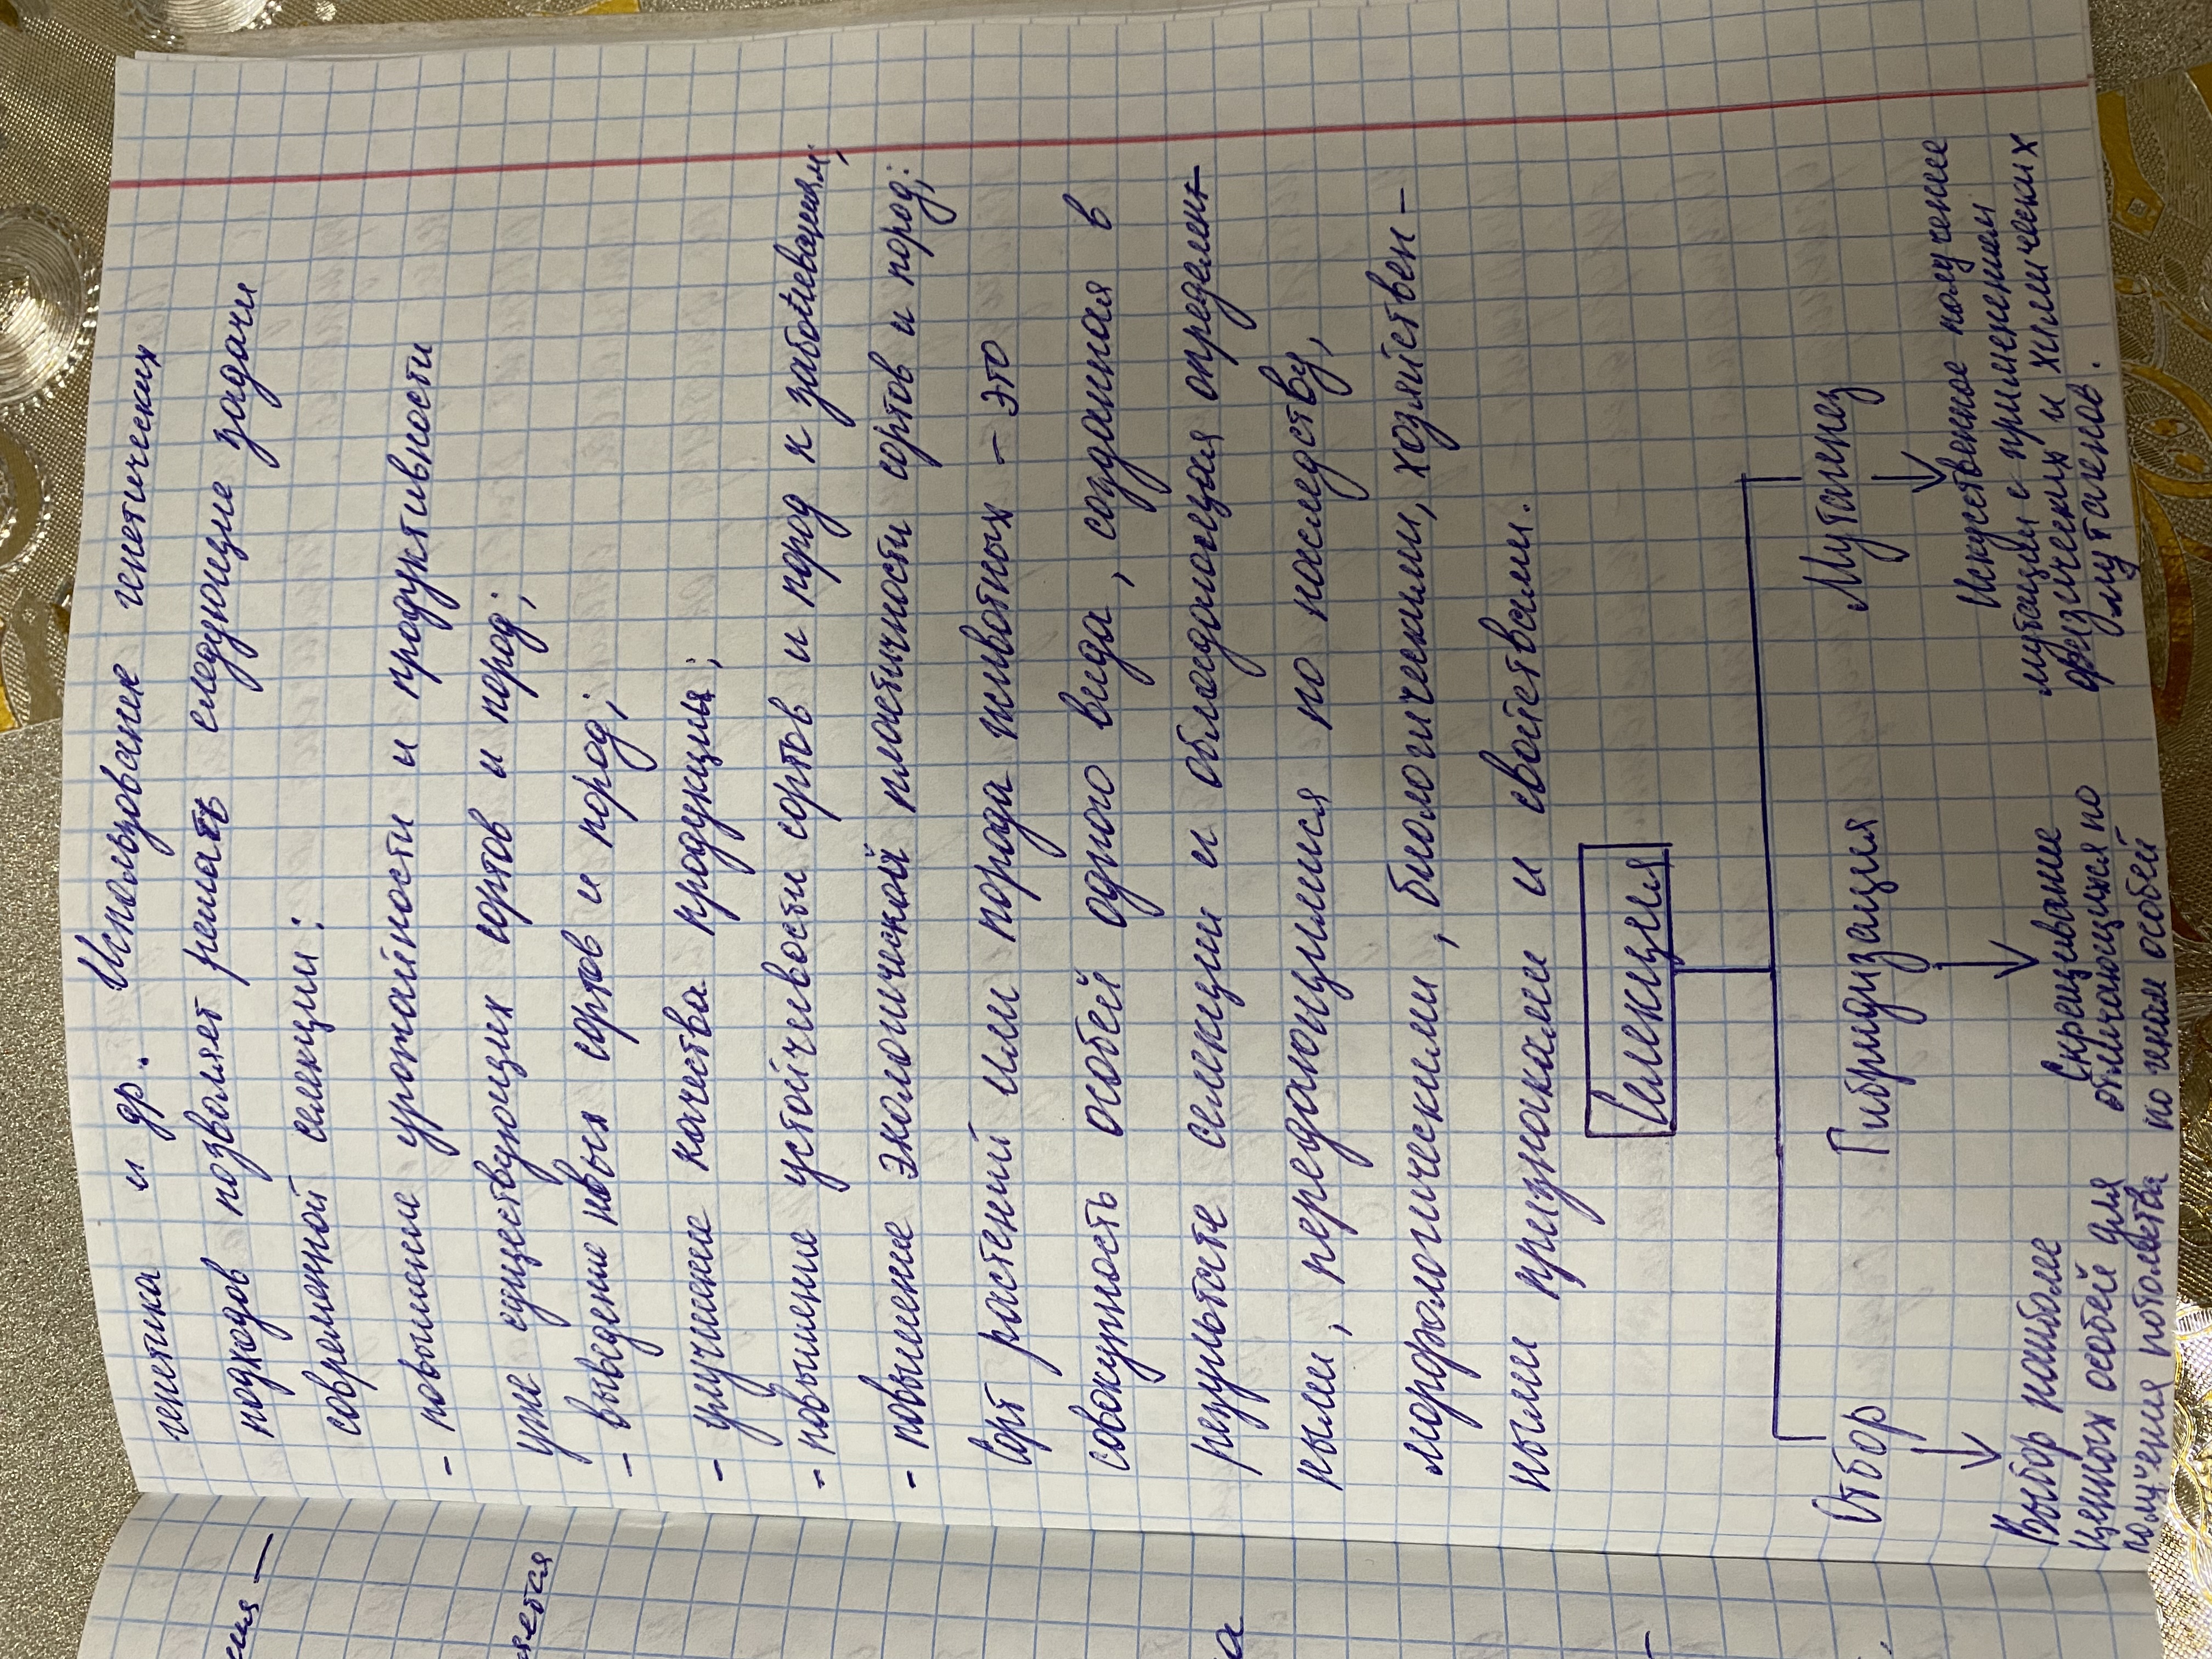 генетика и др. Использование генетических
подходов позволяет решать следующие задачи
современной селекции:
- повышение урожайности и продуктивности
уже существующих сортов и пород;
- выведение новых сортов и пород;
- улучшение качества продукции;
- повышение устойчивости сортов и пород к заболеваниям;
- повышение экологической пластичности сортов и пород;
Сорт растений или порода животных – это
совокупность особей одного вида, созданная в
результате селекции и обладающая определен-
ными, передающимися по наследству,
морфологическими, биологическими, хозяйствен-
ными признаками и свойствами.
Селекция
Отбор Гибридизация Мутагенез
Выбор наиболее
ценных особей для
получения потомства
Скрещивание
отличающихся по
по генам особей
Искуственное получение
мутаций с применением
физических и химических
мутагенов.
ется